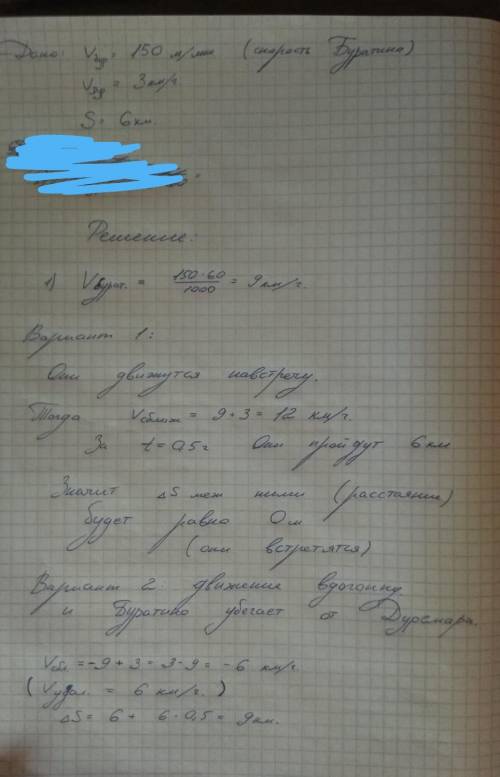 Дано: Vбур = 150 м/мин (скорость Буратино)
Vдур = 3 км/ч
S = 6 км.
Решение:
1) Vбурат. = 150·60/1000 = 9 км/ч.
Вариант 1:
Они движутся навстречу.
Тогда Vсближ = 9+3 = 12 км/ч.
За t = 0,5 ч Они пройдут 6 км
Значит ΔS меж ними (расстояние)
будет равно 0 м
(они встретятся)
Вариант 2: движение вдогонку
и Буратино убегает от Дуремара.
Vсбл = -9+3 = 3-9 = -6 км/ч.
(Vудал. = 6 км/ч.)
ΔS = 6 + 6·0,5 = 9 км.